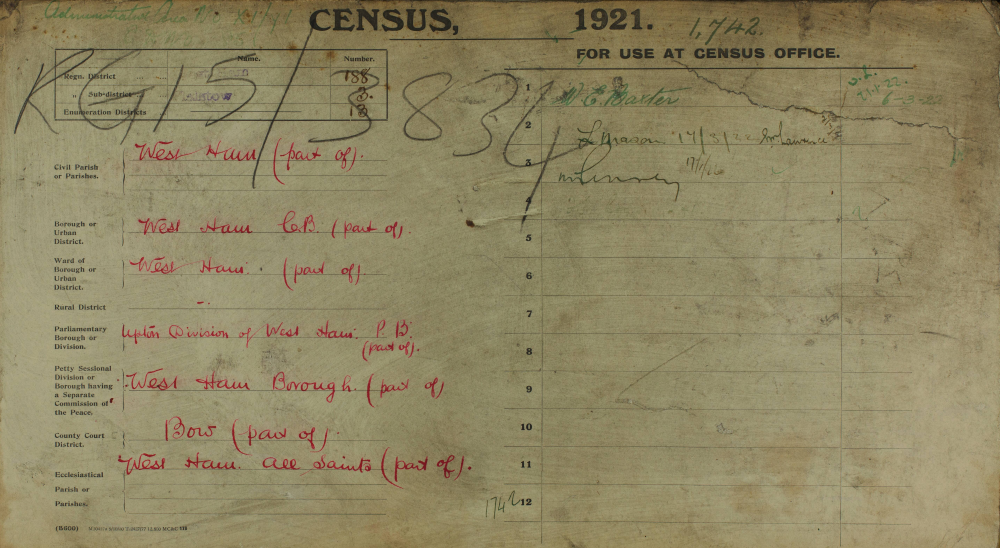 Administrative Area No.
CENSUS, 1921.
1,742.
FOR USE AT CENSUS OFFICE.
Name. Number.
Regn. District 188
„ Sub-district Plaistow 3.
Enumeration Districts 13
RG 15/
Civil Parish or Parishes. West Ham (part of).
Borough or Urban District. West Ham C.B. (part of).
Ward of Borough or Urban District. West Ham. (part of)
Rural District -.
Parliamentary Borough or Division. Upton Division of West Ham. P.B. (part of).
Petty Sessional Division or Borough having a Separate Commission of the Peace. West Ham Borough. (part of)
County Court District. Bow (part of).
Ecclesiastical Parish or Parishes. West Ham. All Saints (part of).
(B600)
1 W. E. Baxter
2 L Mason 17/3/22
3
4
5
6
7
8
9
10
11
1742 12